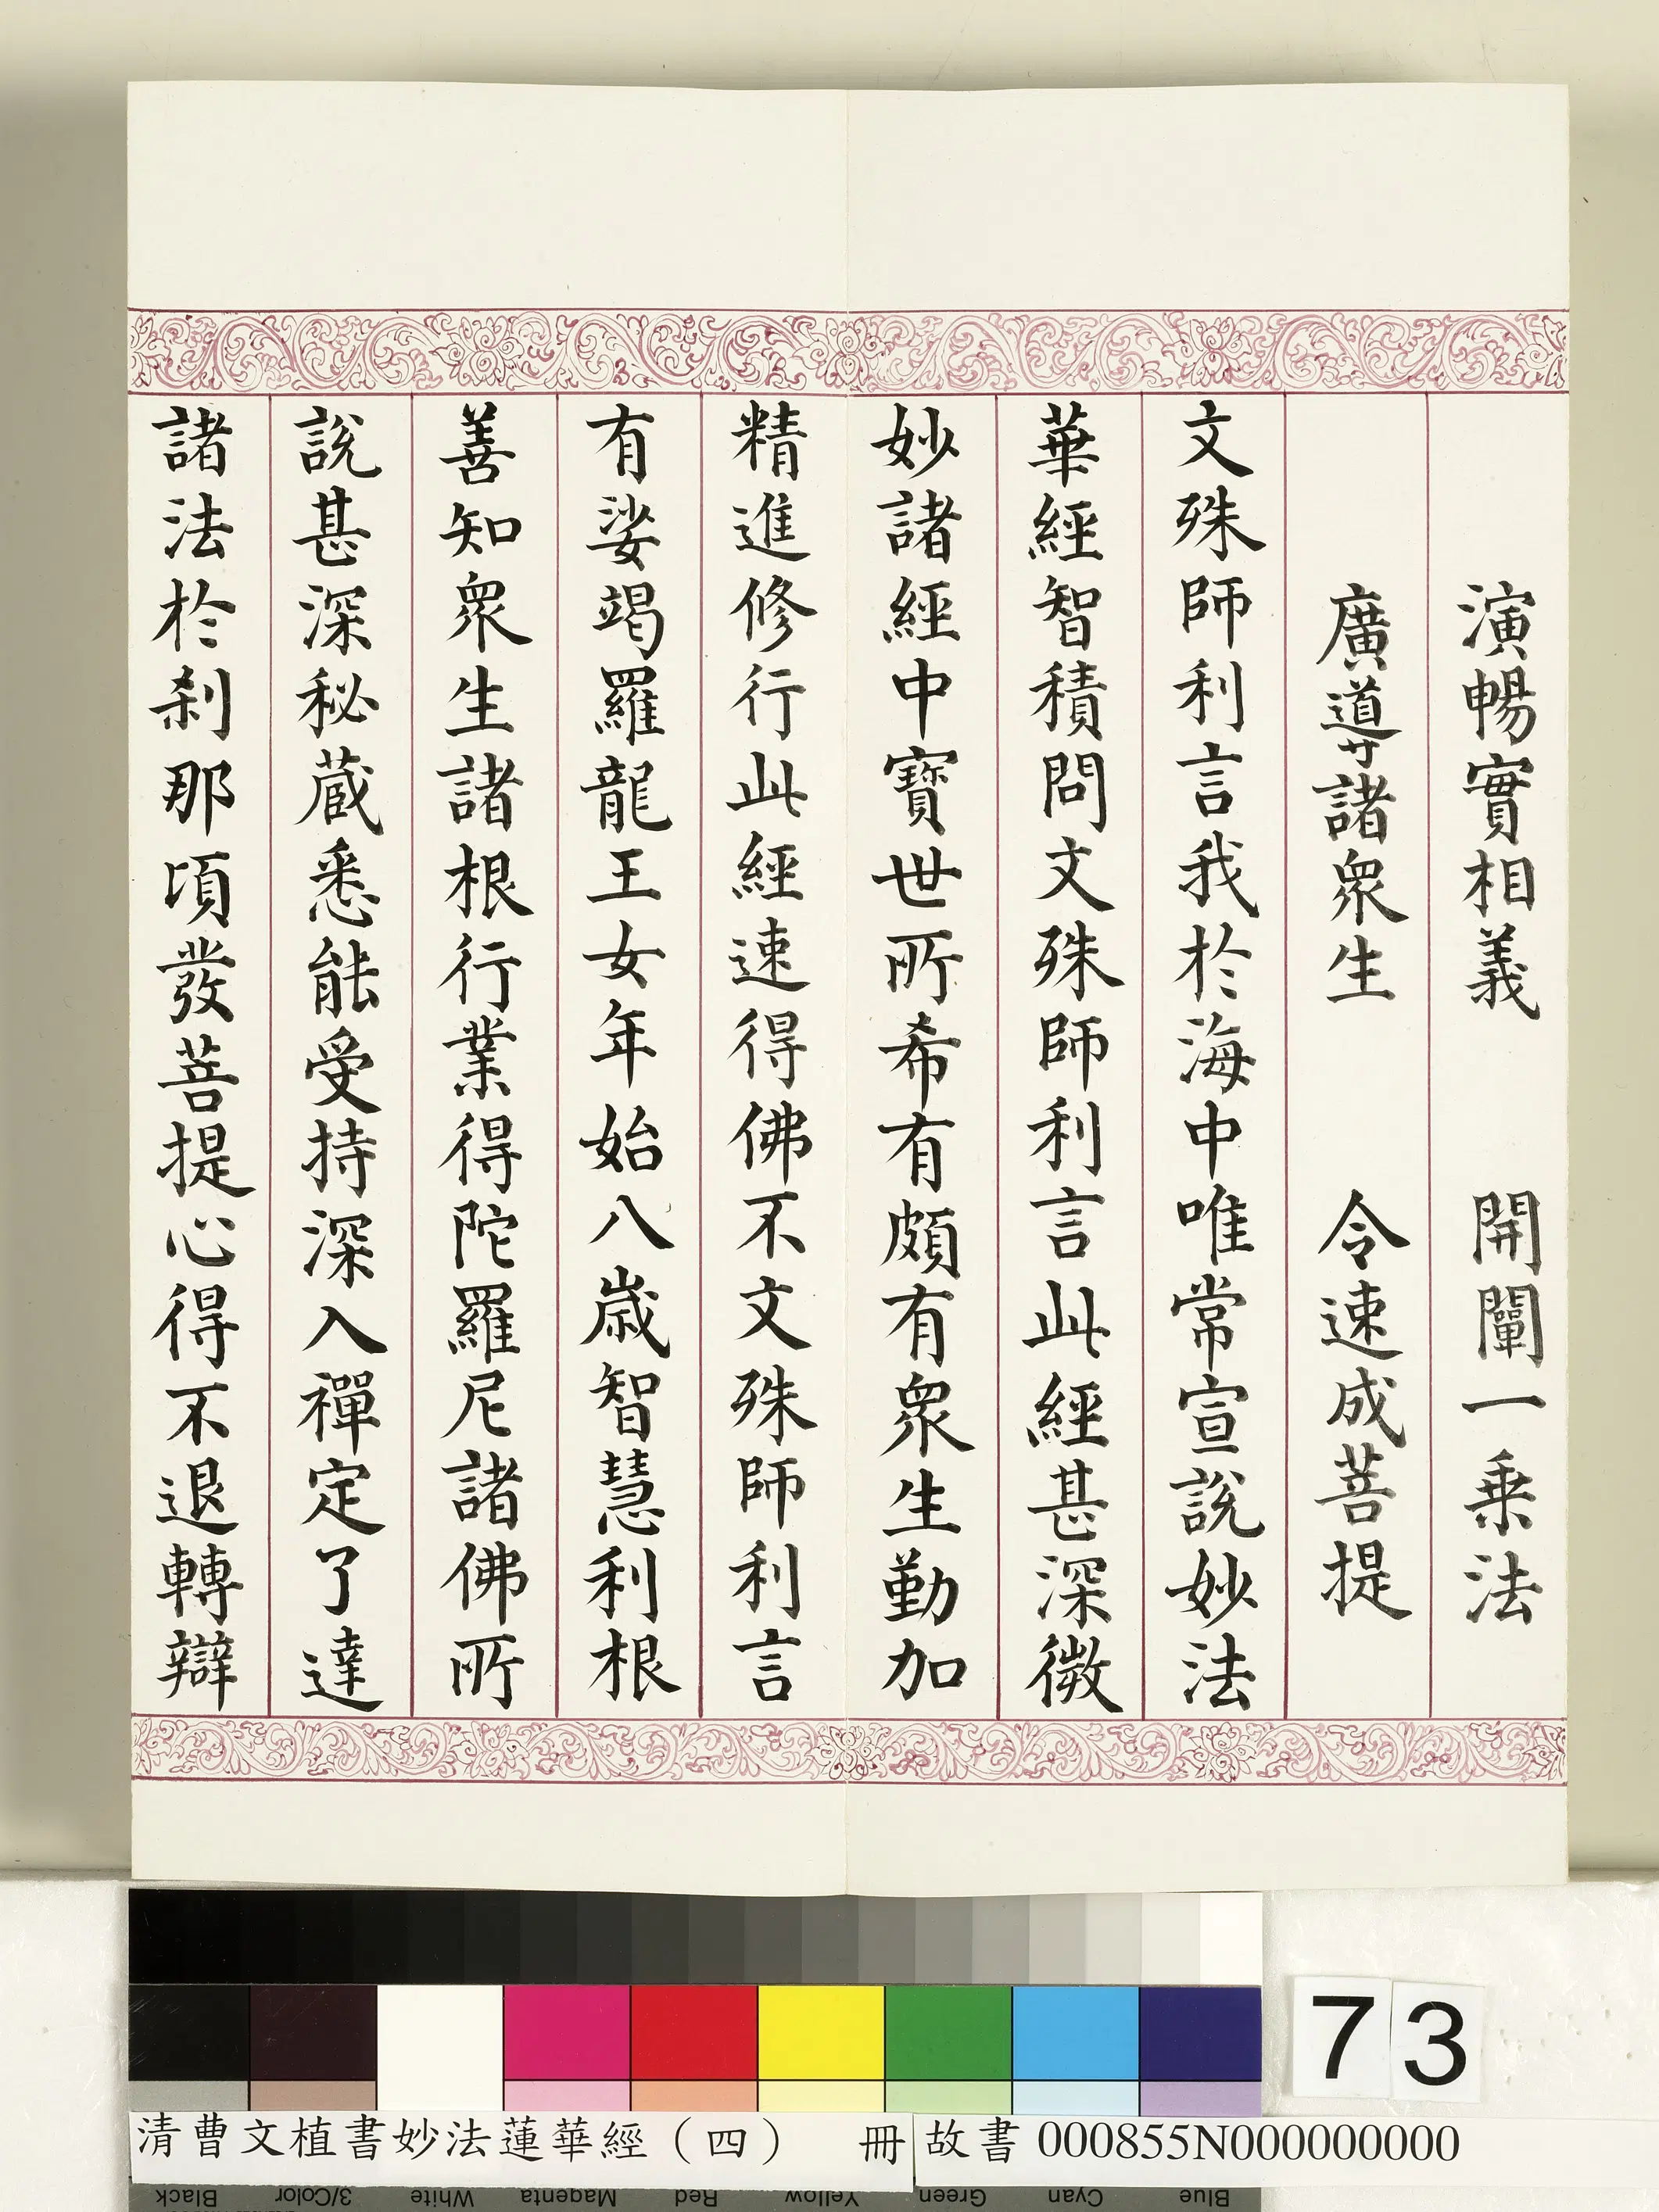 演暢實相義　開闡一乗法
廣導諸衆生　令速成菩提
文殊師利言我於海中唯常宣說妙法
華經智積問文殊師利言此經甚深微
妙諸經中寶世所希有頗有衆生勤加
精進修行此經速得佛不文殊師利言
有娑竭羅龍王女年始八歲智慧利根
善知衆生諸根行業得陀羅尼諸佛所
說甚深秘蔵悉能受持深入禪定了達
諸法於刹那頃發菩提心得不退轉辯
73
清曹文植書妙法蓮華經（四）　冊
故書 000855N000000000
Black 3/Color White Magenta Red Yellow Green Cyan Blue